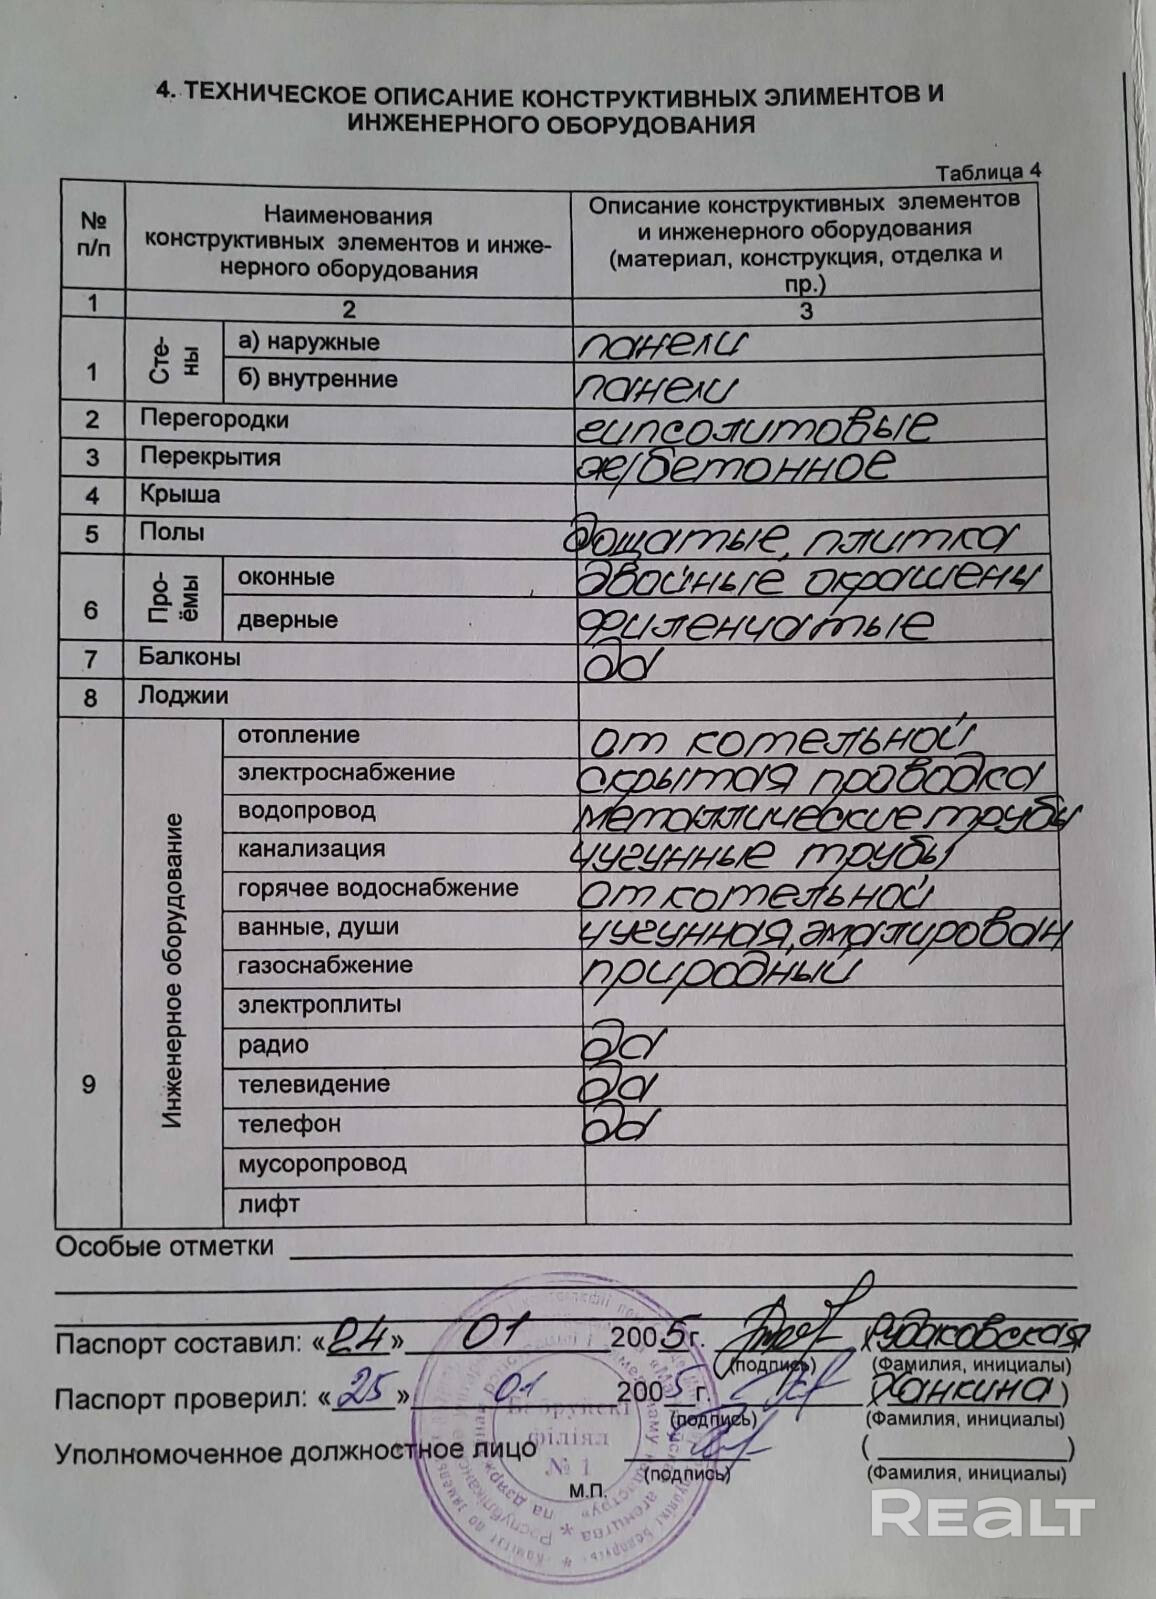 4. ТЕХНИЧЕСКОЕ ОПИСАНИЕ КОНСТРУКТИВНЫХ ЭЛИМЕНТОВ И
ИНЖЕНЕРНОГО ОБОРУДОВАНИЯ
Таблица 4
№ п/п
Наименования
конструктивных элементов и инже-
нерного оборудования
Описание конструктивных элементов
и инженерного оборудования
(материал, конструкция, отделка и
пр.)
1 2 3
1 Сте-
ны
а) наружные панели
б) внутренние панели
2 Перегородки гипсолитовые
3 Перекрытия ж/бетонное
4 Крыша
5 Полы дощатые, плитка
6 Про-
ёмы
оконные двойные окрашены
дверные филенчатые
7 Балконы да
8 Лоджии
9 Инженерное оборудование
отопление от котельной
электроснабжение скрытая проводка
водопровод металлические трубы
канализация чугунные трубы
горячее водоснабжение от котельной
ванные, души чугунная, эмалирован
газоснабжение природный
электроплиты
радио да
телевидение да
телефон да
мусоропровод
лифт
Особые отметки
Паспорт составил: «24» 01 2005г. (Рудаковская
(подпись) (Фамилия, инициалы)
Паспорт проверил: «25» 01 2005г. (Ханкина)
(подпись) (Фамилия, инициалы)
Уполномоченное должностное лицо ( )
(подпись) (Фамилия, инициалы)
М.П.
Бабруйскі
філіял
№ 1
REALT